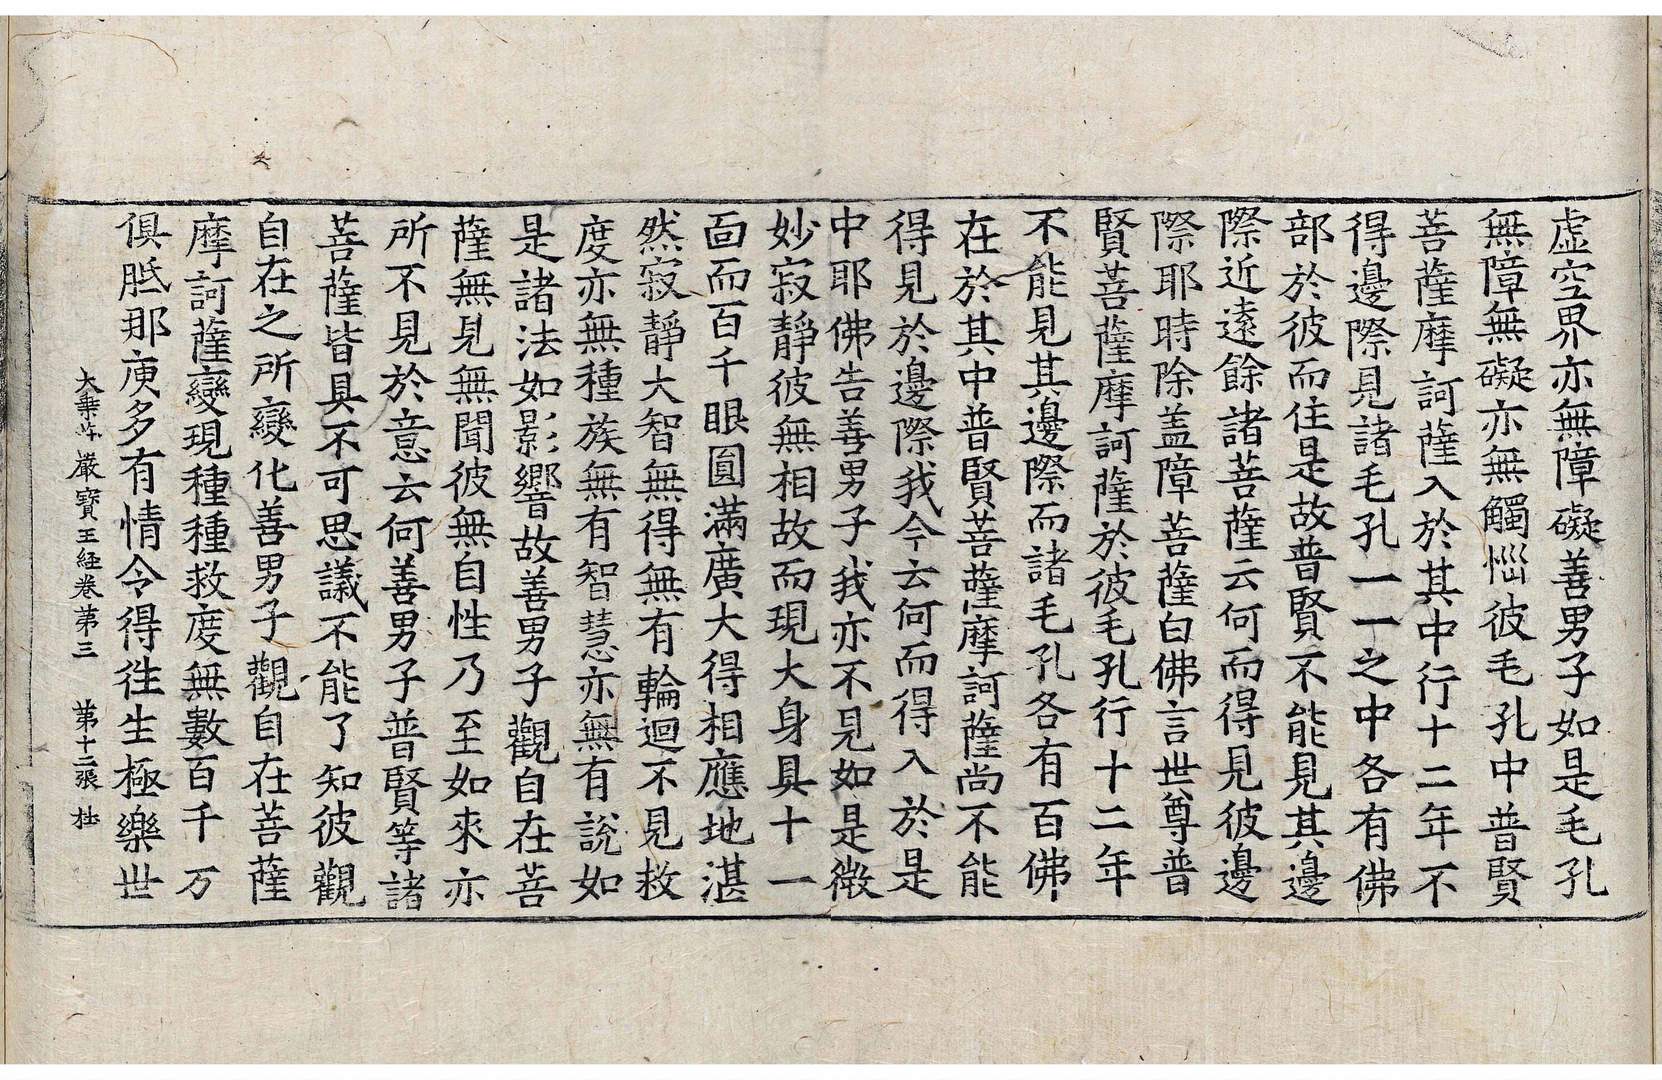 虛空界亦無障礙善男子如是毛孔
無障無礙亦無觸惱彼毛孔中普賢
菩薩摩訶薩入於其中行十二年不
得邊際見諸毛孔一一之中各有佛
部於彼而住是故普賢不能見其邊
際近遠餘諸菩薩云何而得見彼邊
際耶時除盖障菩薩白佛言世尊普
賢菩薩摩訶薩於彼毛孔行十二年
不能見其邊際而諸毛孔各有百佛
在於其中普賢菩薩摩訶薩尚不能
得見於邊際我今云何而得入於是
中耶佛告善男子我亦不見如是微
妙寂靜彼無相故而現大身具十一
面而百千眼圓滿廣大得相應地湛
然寂靜大智無得無有輪迴不見救
度亦無種族無有智慧亦無有說如
是諸法如影響故善男子觀自在菩
薩無見無聞彼無自性乃至如來亦
所不見於意云何善男子普賢等諸
菩薩皆具不可思議不能了知彼觀
自在之所變化善男子觀自在菩薩
摩訶薩變現種種救度無數百千万
俱胝那庾多有情令得徃生極樂世
大乗𦬇嚴寳王経卷第三 第十二張 杜